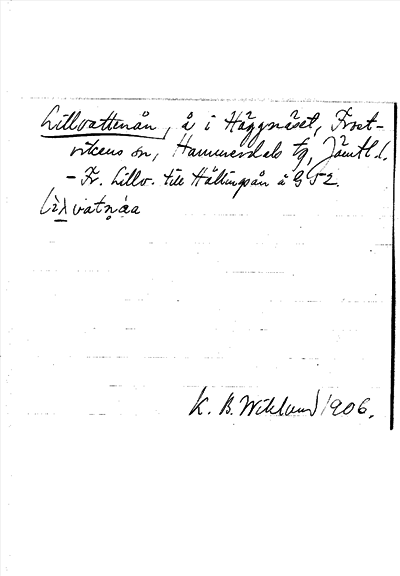 Lillvattenån, å i Häggnäset, Frost-
vikens sn, Hammerdals tg, Jämtl. l.
– Fr. Lillv. till Hällingsån å G 52.
vatṇáa
K. B. Wiklund 1906.